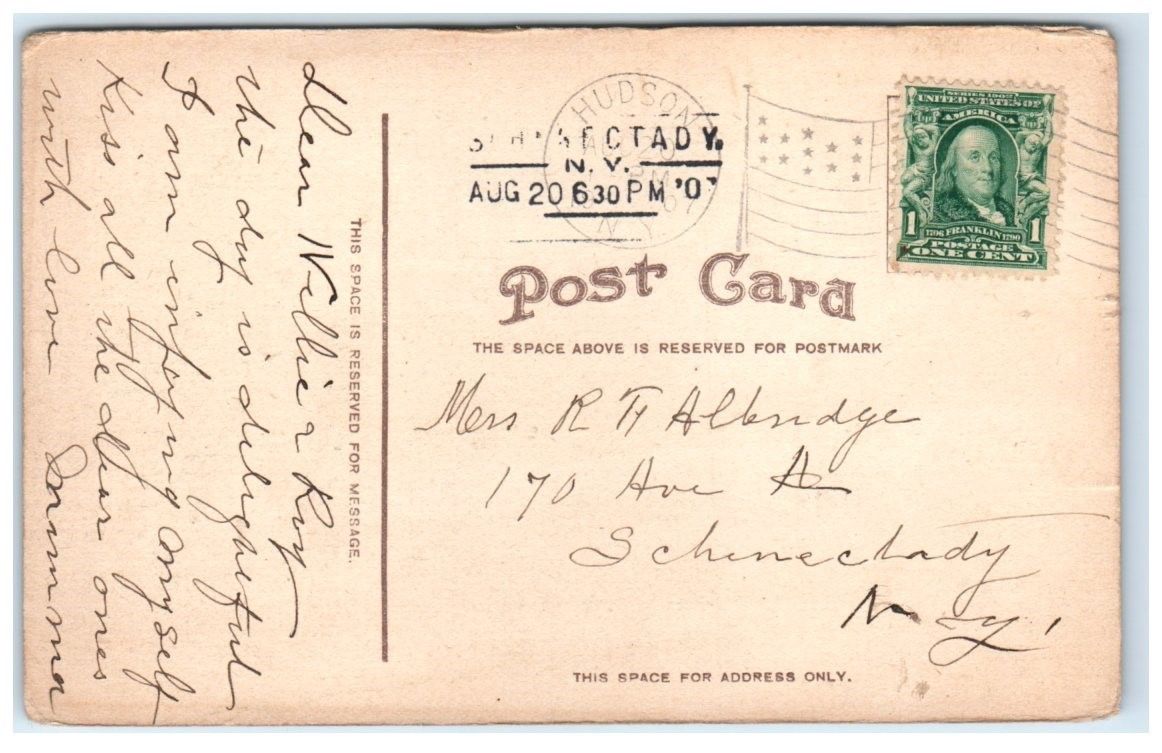 Dear Nellie & Roy
the day is delightful
I am injoying myself
Kiss all the dear ones
with love Mamma
THIS SPACE IS RESERVED FOR MESSAGE.
HUDSON
N.Y.
SCHENECTADY.
N.Y.
AUG 20 630 PM '07
SERIES 1902
UNITED STATES OF
AMERICA
1 1
1706 FRANKLIN 1790
POSTAGE
ONE CENT
Post Card
THE SPACE ABOVE IS RESERVED FOR POSTMARK
Mrs R H Albridge
170 Ave A
Schenectady
N.Y.
THIS SPACE FOR ADDRESS ONLY.